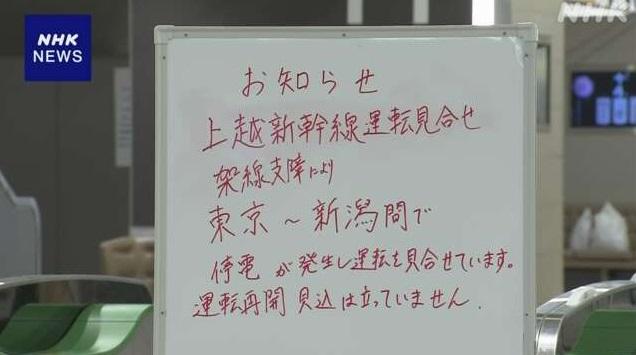 NHK
NEWS
NHK
お知らせ
上越新幹線運転見合せ
架線支障により
東京〜新潟間で
停電が発生し運転を見合せています。
運転再開見込は立っていません.